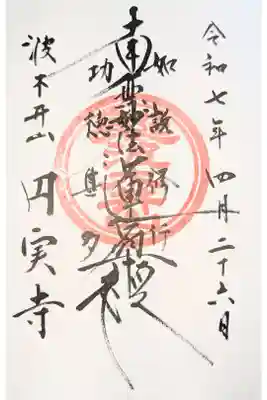 令和七年四月二十六日
如説修行
南無妙法蓮華経
功徳甚多
波木井山 円実寺